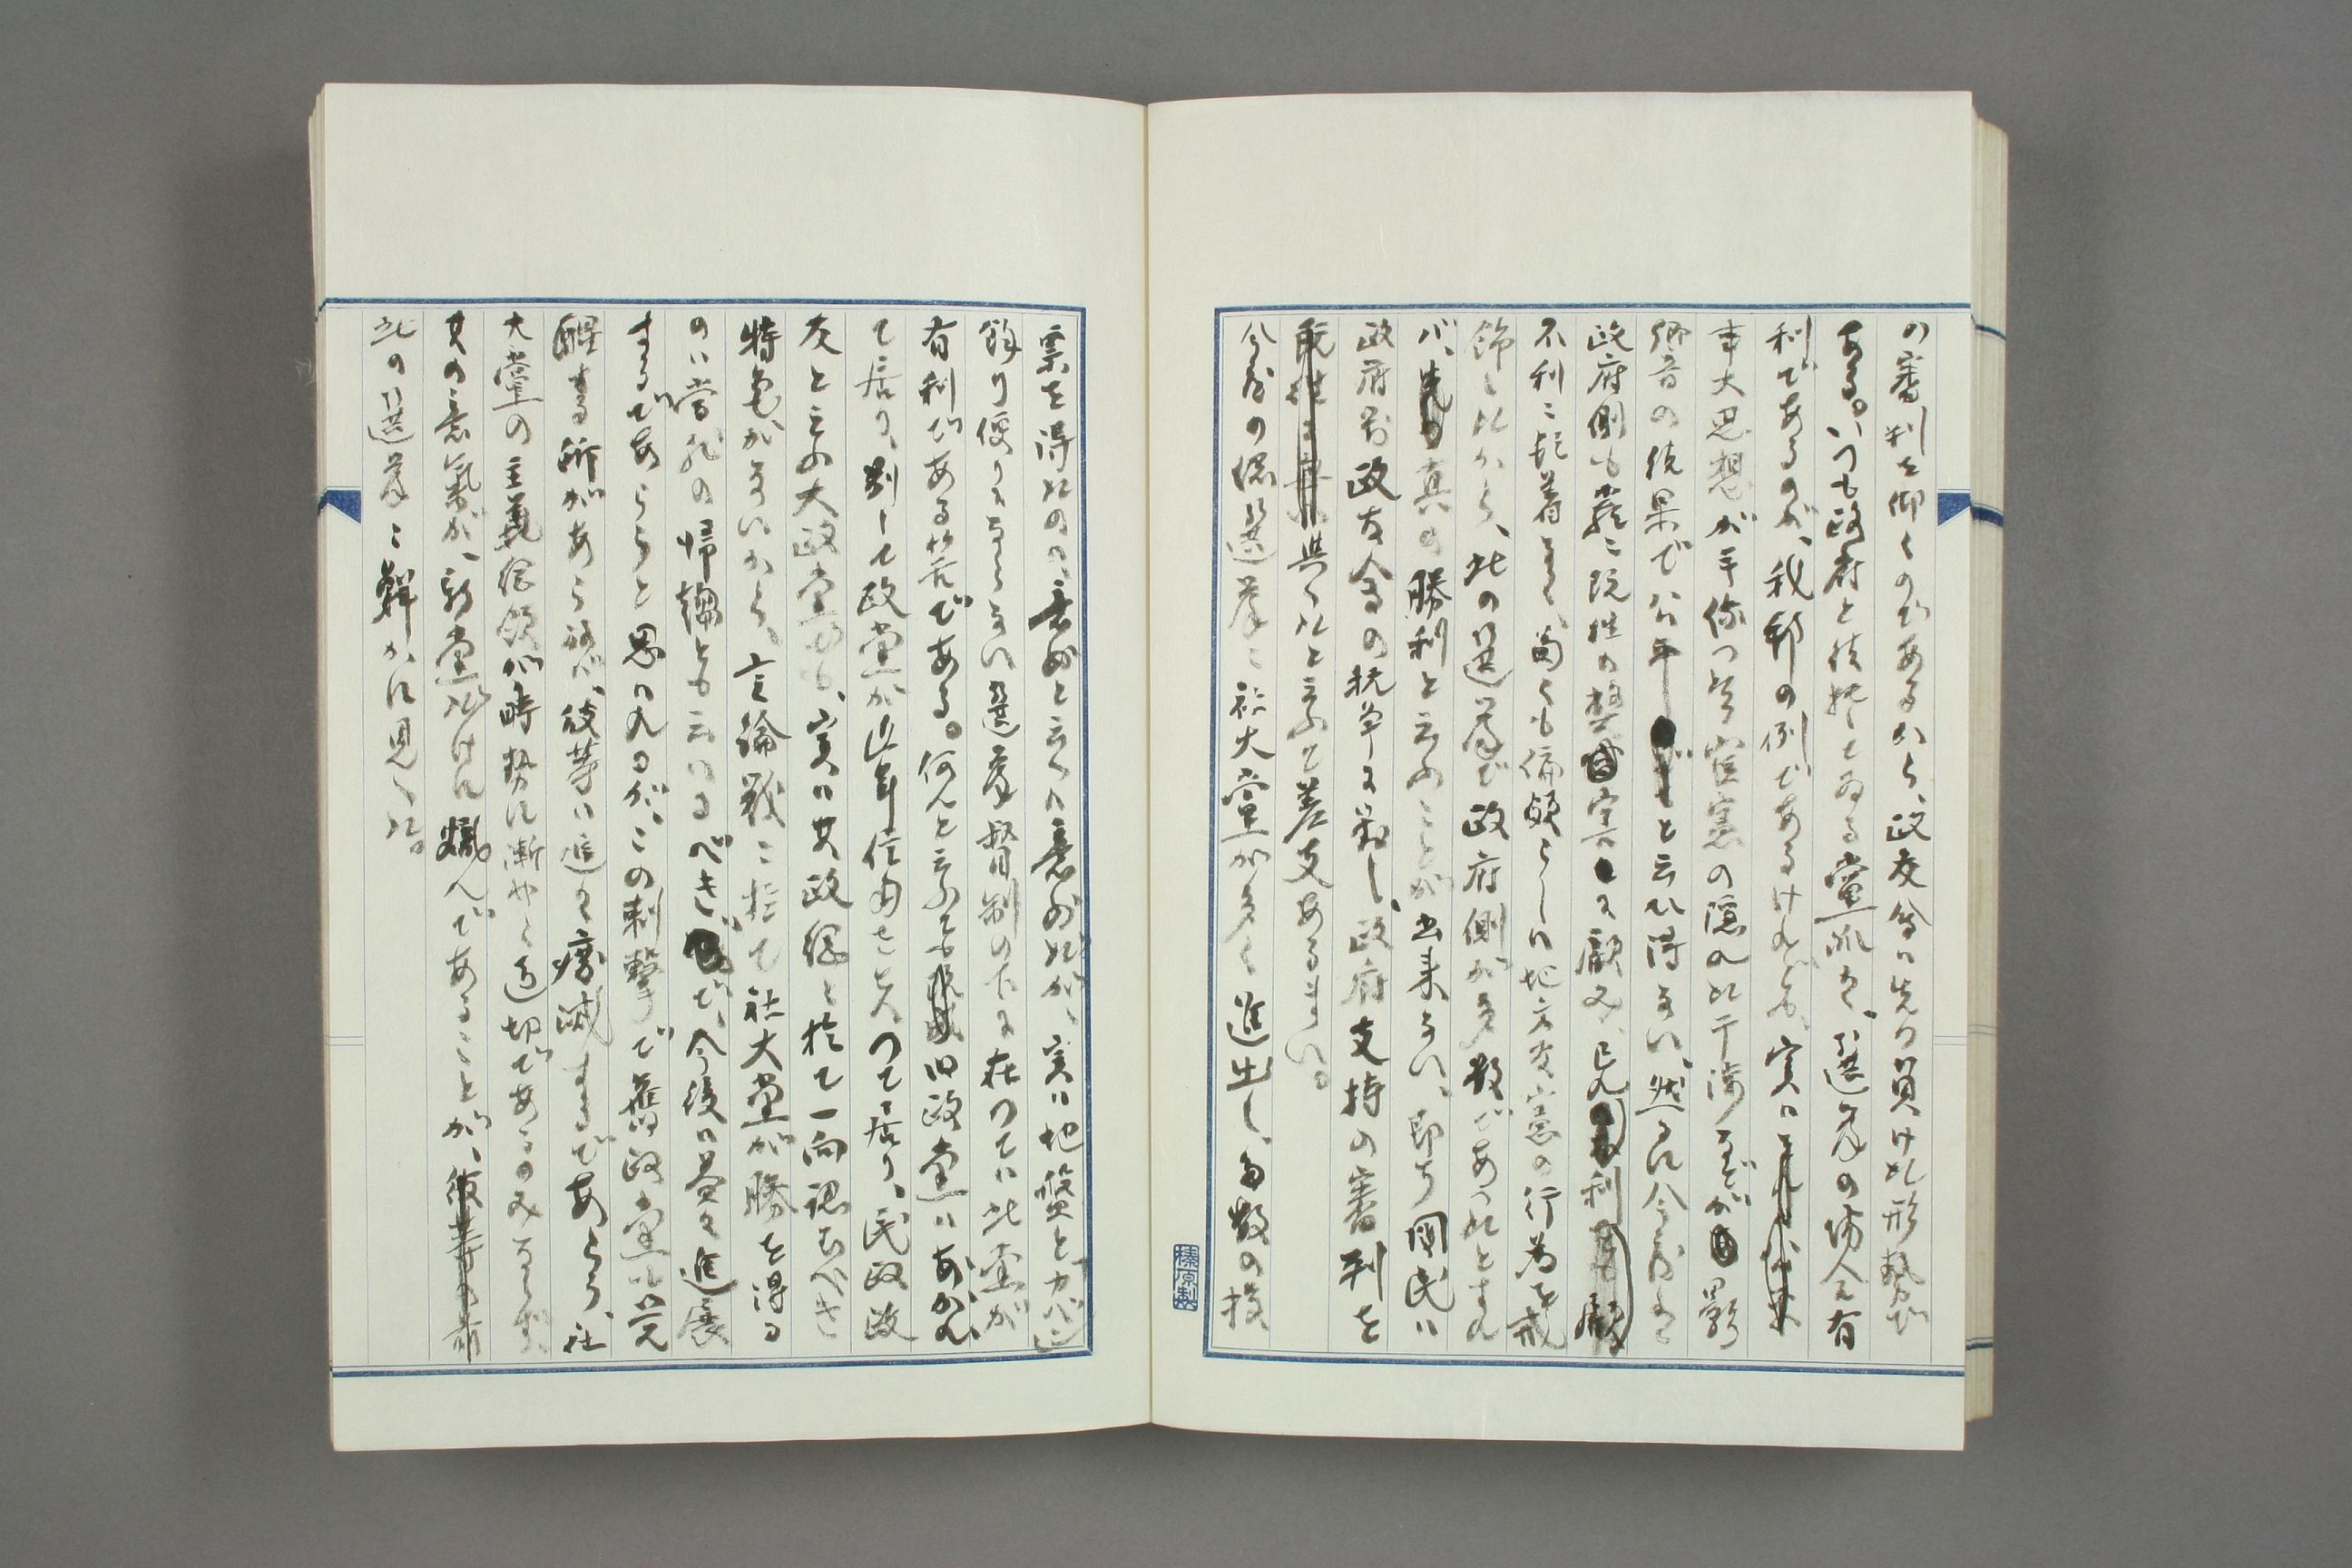 の審判を仰ぐのであるから、政友会は先づ負けた形勢で
ある。いつも政府と接近してゐる党派は、選挙の場合に有
利であるのが、我邦の例であるけれども、実は
事大思想が手伝つた官憲の隠れた干渉などが影
響の結果で公平と云ひ得ない、然るに今度は
政府側も茲に既往の弊害に顧み、己れ利
不利に拘着なく、苟くも偏頗らしい地方官憲の行為を戒
飭したから、此の選挙で政府側が多数であつたとすれ
バ、真の勝利と云ふことが出来ない、即ち国民は
政府対政友会の抗争に対し、政府支持の審判を
与へたと云ふて差支あるまい。
今度の総選挙に社大党が多く進出し、多数の投
票を得たのは、意外と云へば意外だが、実は地盤とか
餘り便りにならない選挙督制の下に在つては此党が
有利である筈である。何んと云ふても旧政党はあかれ
て居り、別して政党が近年信用を失つて居り、民政政
友と云ふ大政党でも、実は其政綱に於て一向認むべき
特色がないから、言論戦に於て社大党が勝を得る
のは当然の帰趨とも云はるべきで、今後は益々進展
するであらうと思はれるが、この刺撃で旧政党は覚
醒する所があらねば、彼等は追々磨滅するであらう、社
大党の主義綱領が時勢に漸やく適切であるのみならず、
其の意気が、新党だけに熾んであることが、
此の選挙に鮮かに見へた。
榛原製